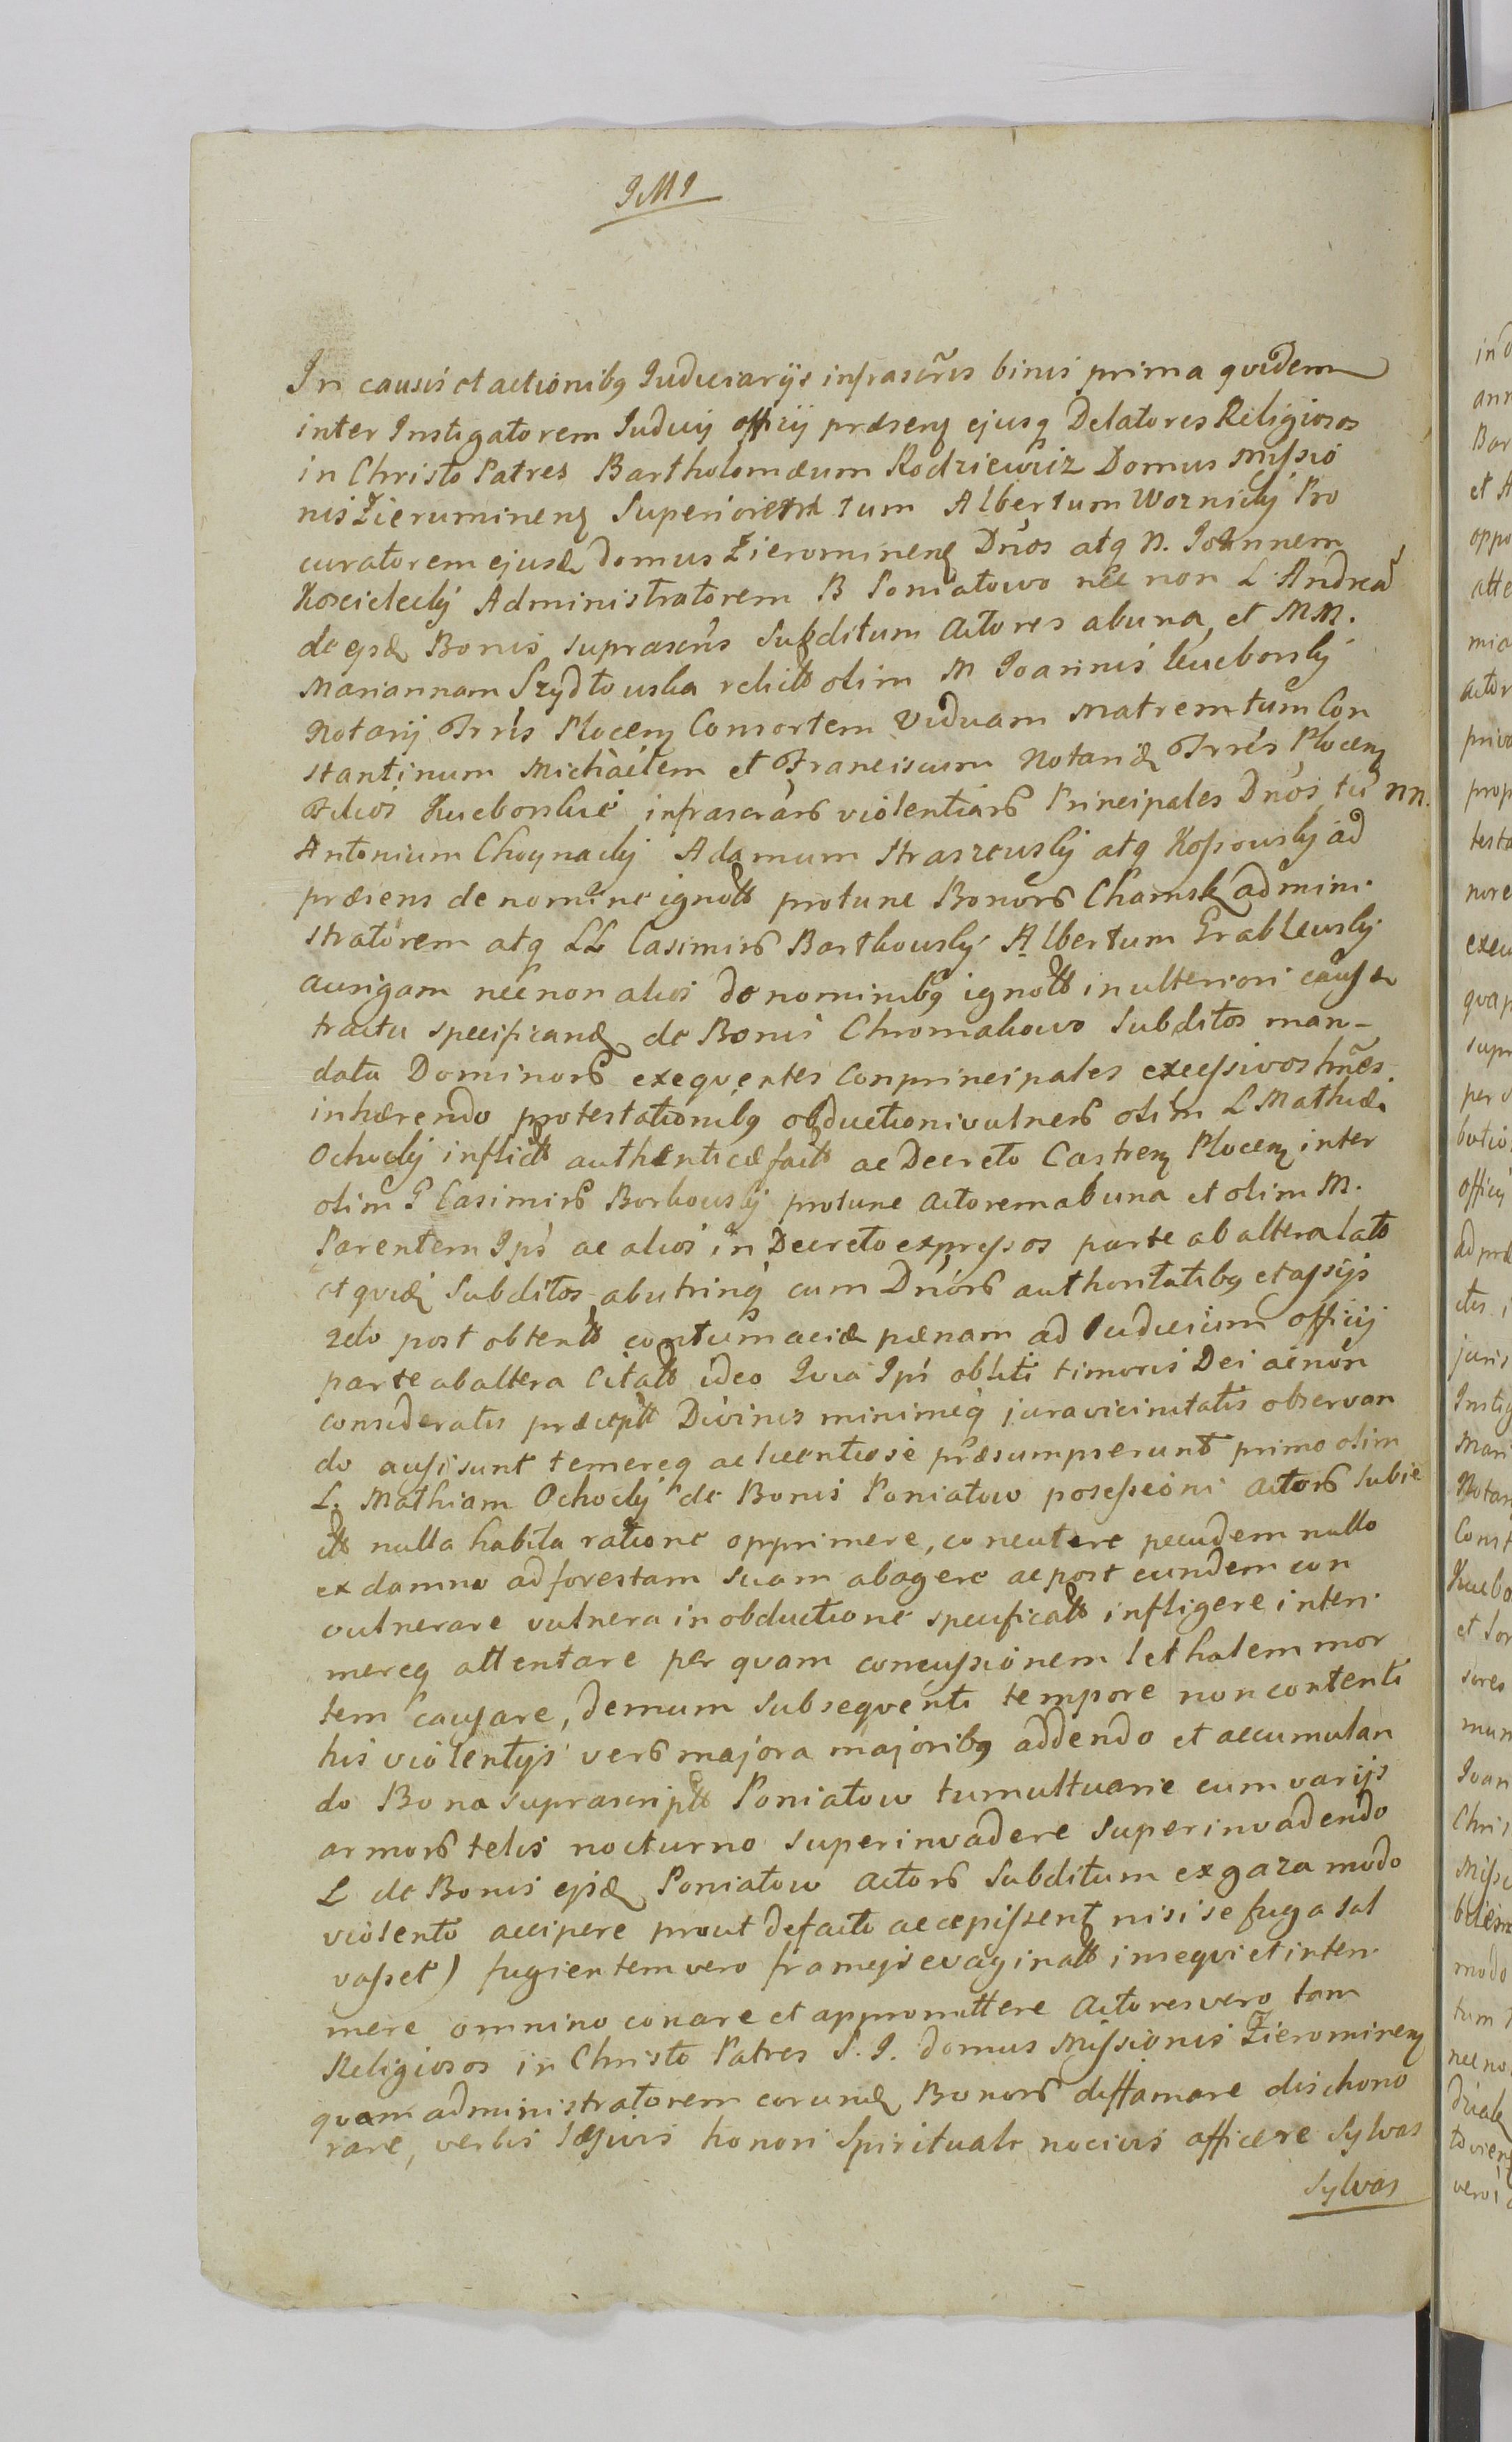 IMI
In causis et actionibq Iudiciarijs infrascr̃is binis prima qvidem
inter Instigatorem Iudicij officij præsenꝫ ejusq Delatores Religiosos
in Christo Patres Bartholomæum Rodziewicz Domus Missio
nis Zieruminenꝫ Superiorem tum Albertum Woznicky Pro
curatorem ejusd domus Zierominenꝫ Dn̄os atq N. Ioannem
Koscielecky Administratorem B Poniatowo nec non L Andreā
de ejsd Bonis suprascrīs Subditum Actores ab una, et MM.
Mariannam Szydłouska relictt olim M Ioannis Kucborsky
Notarij Trr̄is Plocenꝫ Consortem viduam Matrem tum Con
stantinum Michaelem et Franciscum Notariꝫ Trr̄is Plocenꝫ
Filios Kucborskie infrascrārꝫ violentiarꝫ Principales Dn̄os tū NN.
Antonium Choynacky Adamum Straszeusky atq Kossousky ad
præsens de nomine ignott protunc Bonorꝫ Chamsk admini
stratorem atq LL Casimirꝫ Barthousky Albertum Grableusky
aurigam nec non alios de nominibq ignott in ulteriori causæ
tractu specificandꝫ de Bonis Chromakowo Subditos man-
data Dominorꝫ exeqventes Conprincipales excessivos hn̄es
inhærendo protestationibq obductioni vulnerꝫ olim L Mathiæ
Ochocky inflictt authenticæ factt ac Decreto Castrenꝫ Plocenꝫ inter
olim G Casimirꝫ Borkousky protunc Actorem ab una et olim M.
Parentem Ips̄ ac alios in Decreto expressos parte ab altera latt
et qvidꝫ Subditos ab utrinq cum Dn̄orꝫ authoritatibq et assijs
zelo post obtentt contumaciæ pænam ad Iudicium officij
parte ab altera Citatt ideo Qvia Ips̄i obliti timoris Dei ac non
consideratis præceptt Divinis minimeq jura vicinitatis observan
do ausi sunt temereq ac licentiose præsumpserunt primo olim
L. Mathiam Ochocky de Bonis Poniatow possessioni Actorꝫ subie
ctt nulla habita ratione opprimere, concutere pecudem nullo
ex damno ad forestam suam abagere ac post eundem con
vulnerare vulnera in obductione specificatt infligere interi
mereq attentare per qvam concussionem lethalem mor
tem causare, demum subseqventi tempore non contenti
his violentijs verꝫ majora majoribq addendo et accumulan
do Bona suprascriptt Poniatow tumultuarie cum varijs
armorꝫ telis nocturno superinvadere superinvadendo
L de Bonis ejsd Poniatow Actorꝫ Subditum ex gaza modo
violento accipere prout de facto accepissent nisi se fuga sal
vasset) fugientem vero frameis evaginatt inseqvi et interi
mere omnino conare et appromittere Actores vero tam
Religiosos in Christo Patres S. I. domus Missionis Zierominenꝫ
qvam administratorem eorundꝫ Bonorꝫ diffamare dishono
rare, verbis læsivis honori Spirituali nocivis afficere Sylvas
Sylvas